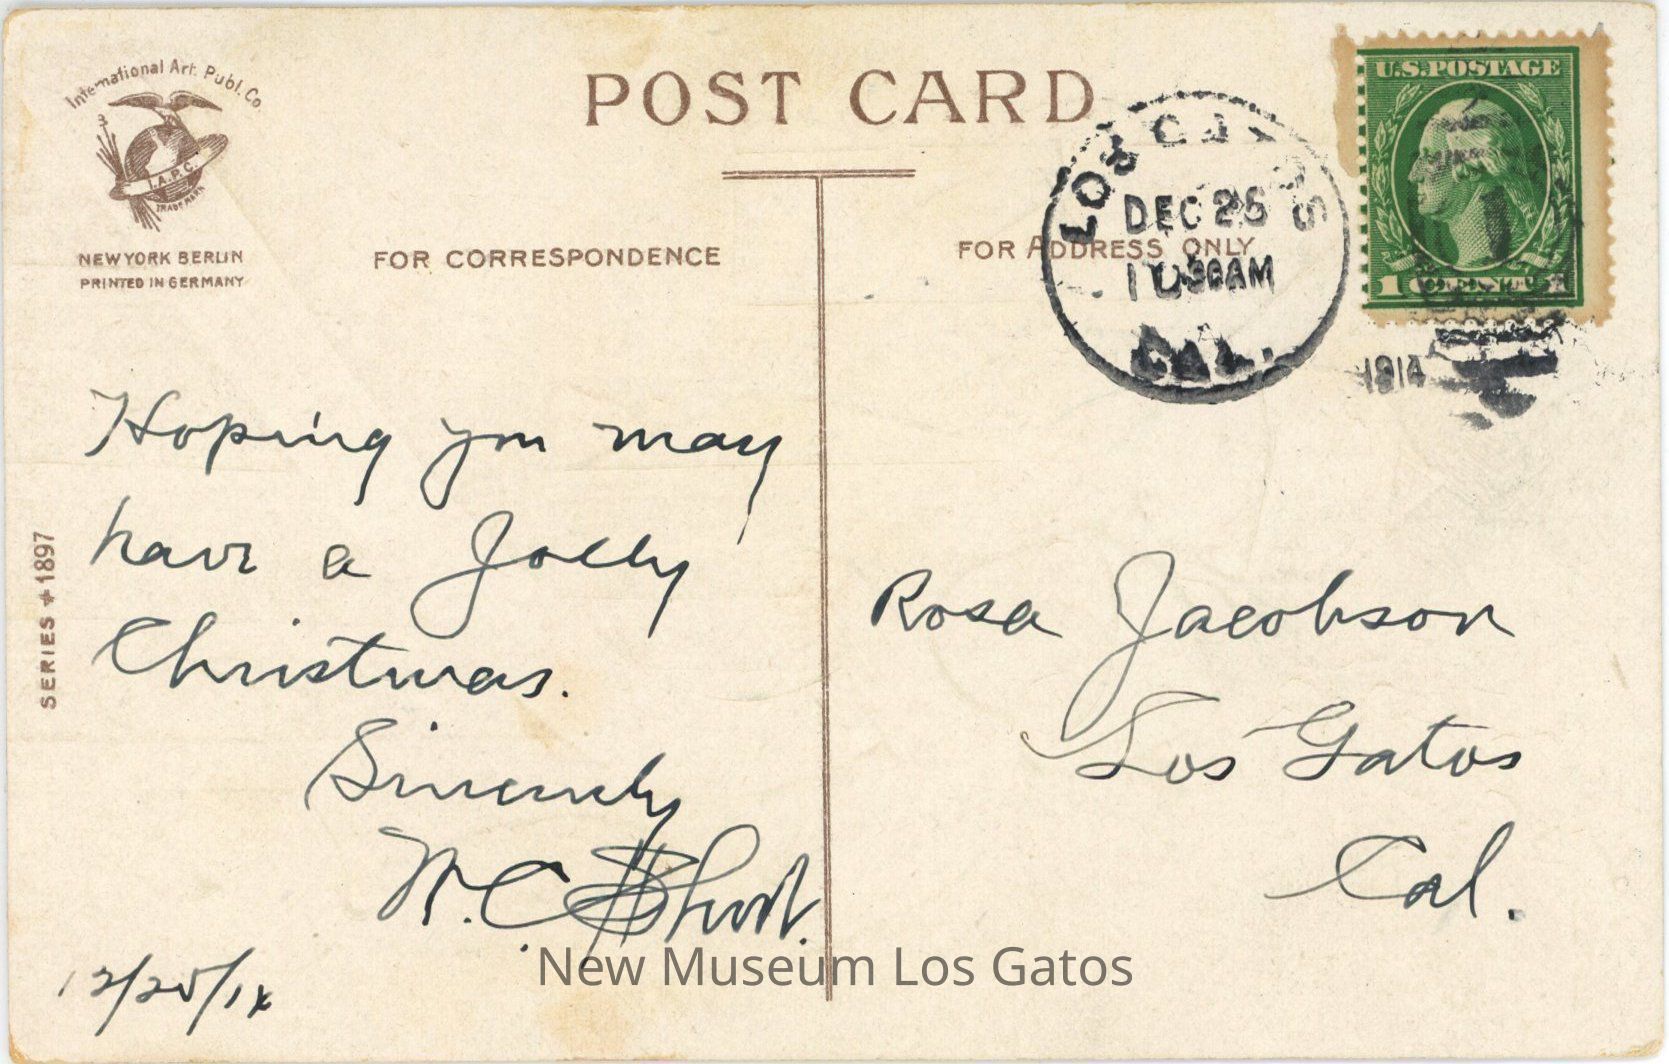 International Art. Publ. Co
I.A.P.C.
TRADE MARK
NEW YORK BERLIN
PRINTED IN GERMANY
POST CARD
FOR CORRESPONDENCE
FOR ADDRESS ONLY
U.S. POSTAGE
1
LOS GATOS
DEC 25
30AM
CAL.
1914
SERIES 1897
Hoping you may
have a Jolly
Christmas.
Sincerely
C.
12/25/14
Rosa Jacobson
Los Gatos
Cal.
New Museum Los Gatos